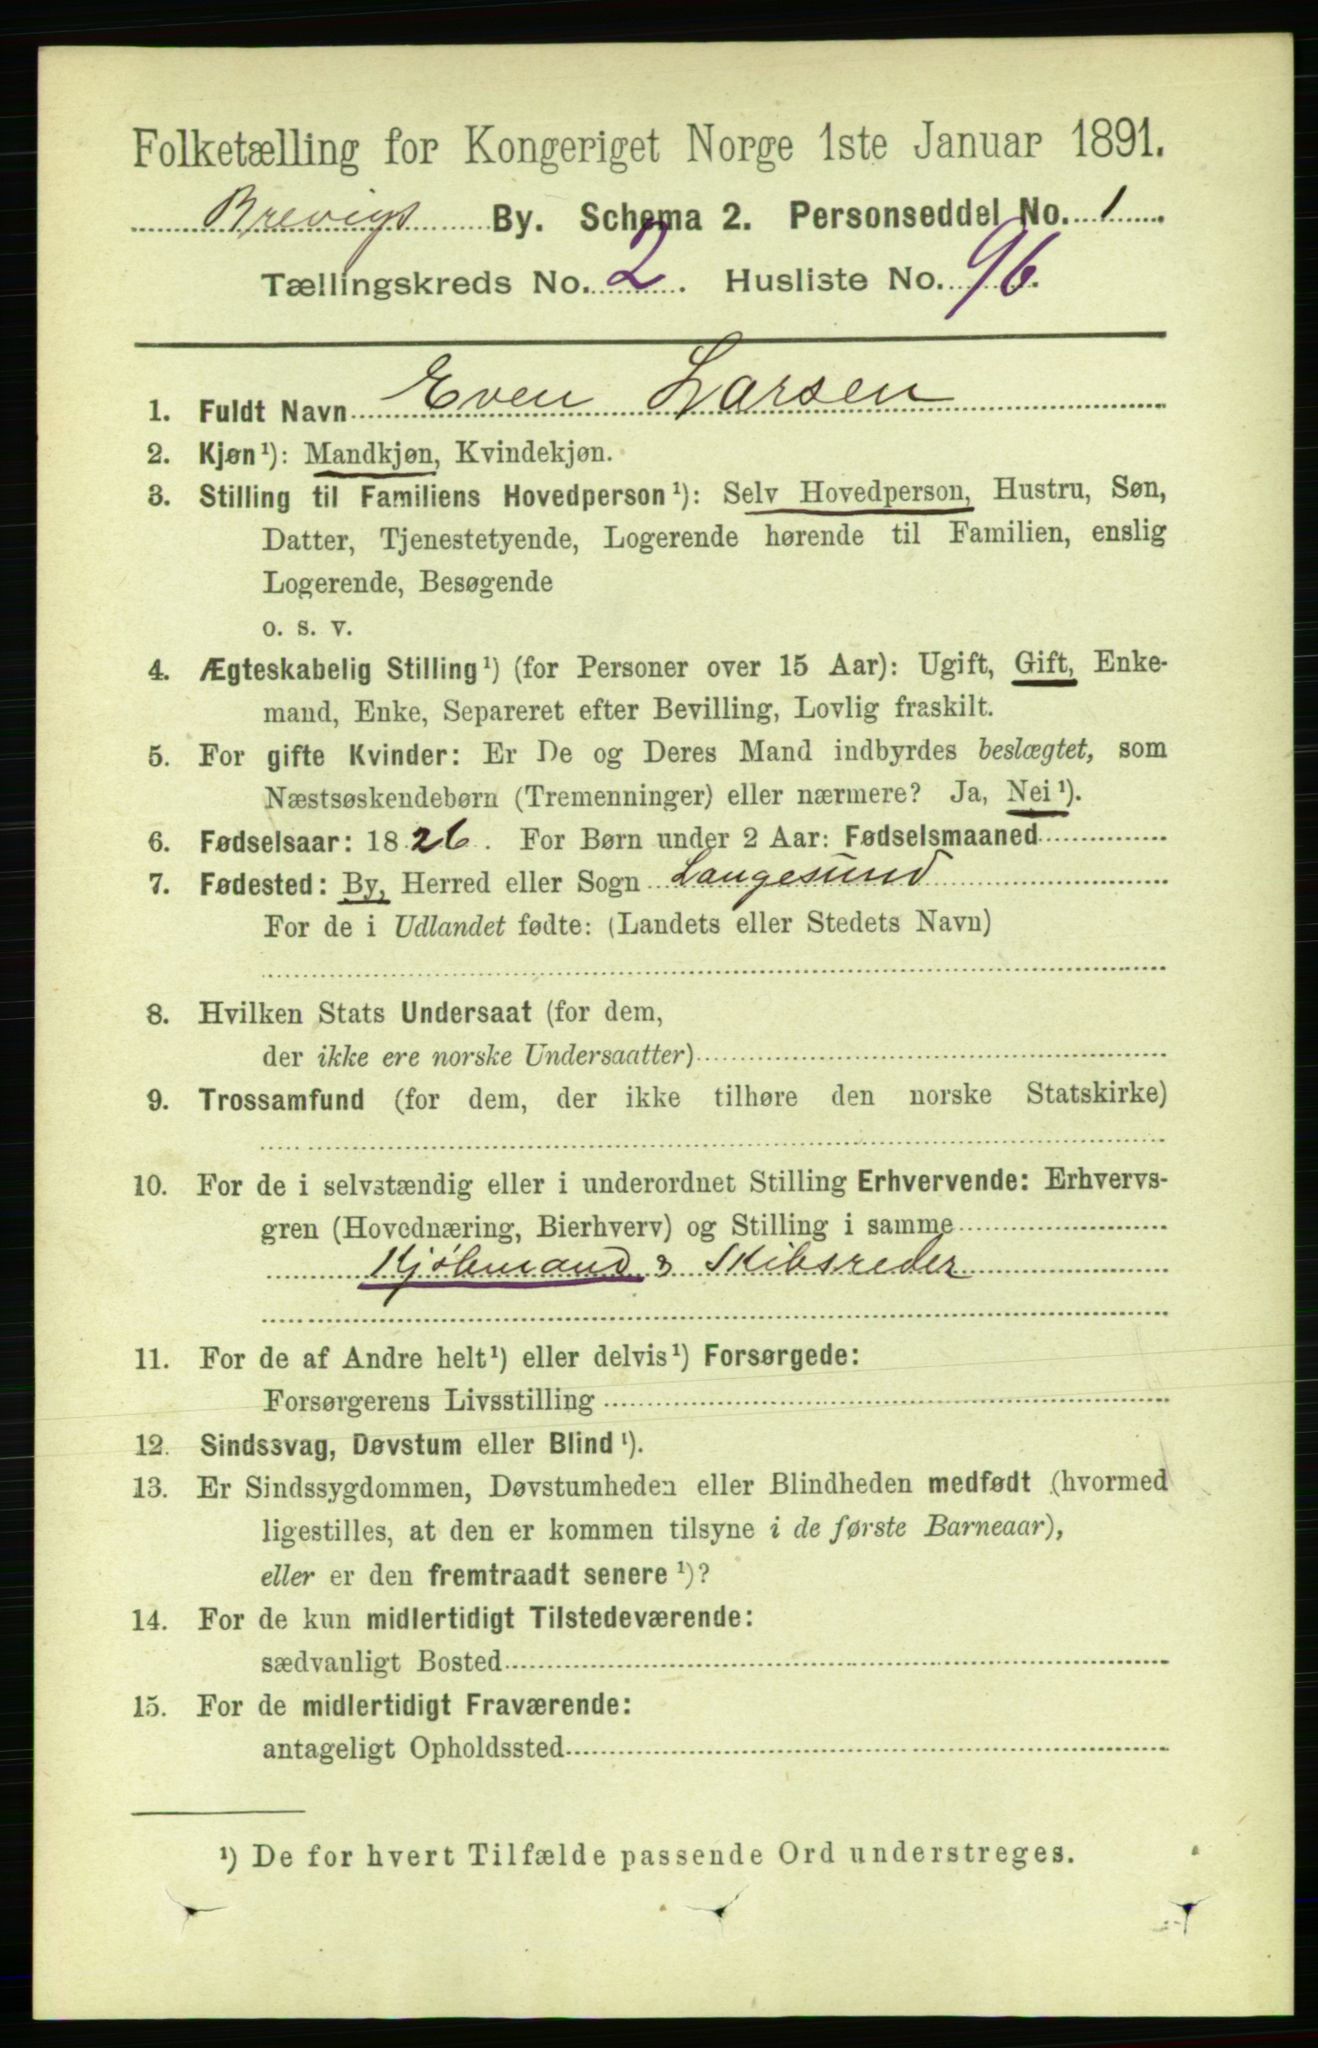 Folketælling for Kongeriget Norge 1ste Januar 1891.
Brevigs By. Schema 2. Personseddel No. 1.
Tællingskreds No. 2. Husliste No. 96.
1. Fuldt Navn Even Larsen
2. Kjøn¹): Mandkjøn, Kvindekjøn.
3. Stilling til Familiens Hovedperson¹): Selv Hovedperson, Hustru, Søn,
Datter, Tjenestetyende, Logerende hørende til Familien, enslig
Logerende, Besøgende
o. s. v.
4. Ægteskabelig Stilling¹) (for Personer over 15 Aar): Ugift, Gift, Enke-
mand, Enke, Separeret efter Bevilling, Lovlig fraskilt.
5. For gifte Kvinder: Er De og Deres Mand indbyrdes beslægtet, som
Næstsøskendebørn (Tremenninger) eller nærmere? Ja, Nei¹).
6. Fødselsaar: 1826. For Børn under 2 Aar: Fødselsmaaned
7. Fødested: By, Herred eller Sogn Langesund
For de i Udlandet fødte: (Landets eller Stedets Navn)
8. Hvilken Stats Undersaat (for dem,
der ikke ere norske Undersaatter)
9. Trossamfund (for dem, der ikke tilhøre den norske Statskirke)
10. For de i selvstændig eller i underordnet Stilling Erhvervende: Erhvervs-
gren (Hovednæring, Bierhverv) og Stilling i samme
Kjøbmand & Skibsreder
11. For de af Andre helt¹) eller delvis¹) Forsørgede:
Forsørgerens Livsstilling
12. Sindssvag, Døvstum eller Blind¹).
13. Er Sindssygdommen, Døvstumheden eller Blindheden medfødt (hvormed
ligestilles, at den er kommen tilsyne i de første Barneaar),
eller er den fremtraadt senere¹)?
14. For de kun midlertidigt Tilstedeværende:
sædvanligt Bosted
15. For de midlertidigt Fraværende:
antageligt Opholdssted
¹) De for hvert Tilfælde passende Ord understreges.